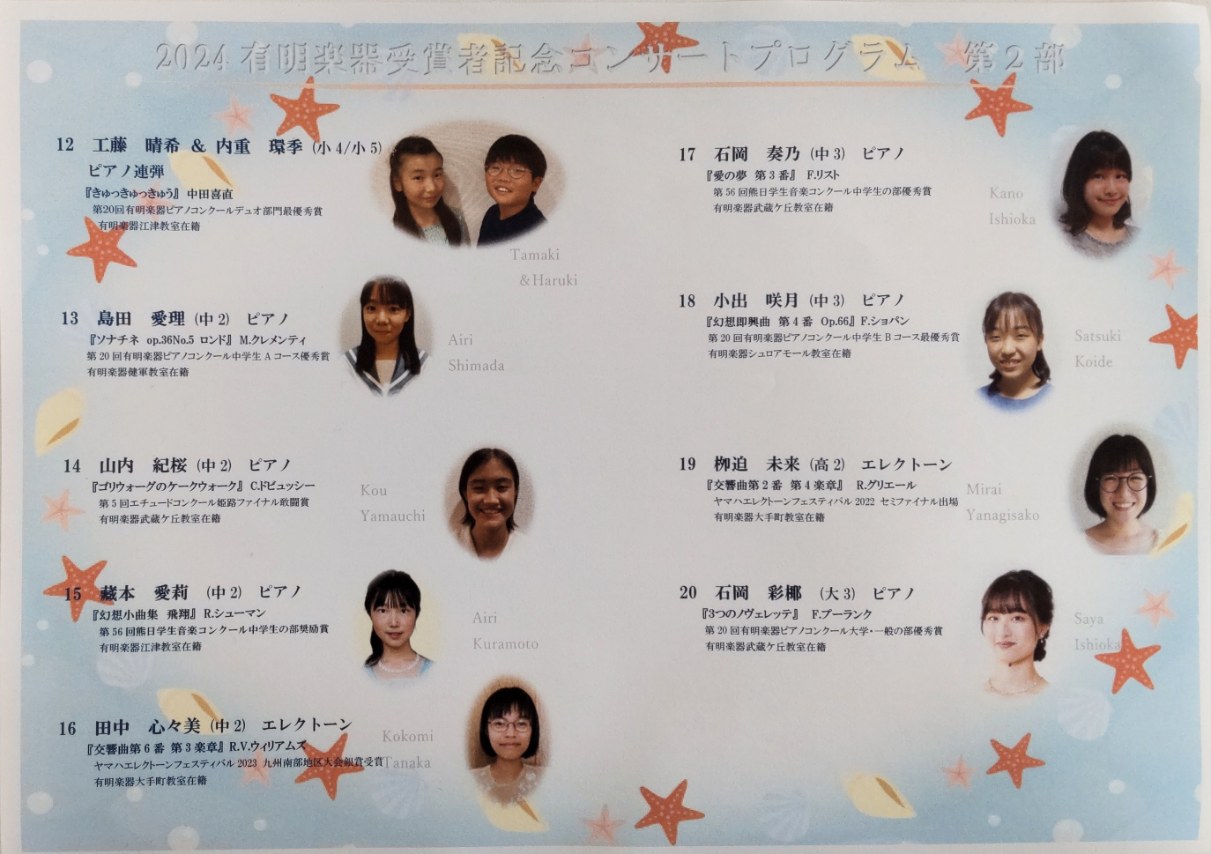 2024有明楽器受賞者記念コンサートプログラム　第２部
12　工藤　晴希 ＆ 内重　環季 (小 4/小 5)
ピアノ連弾
『きゅっきゅっきゅう』 中田喜直
第20回有明楽器ピアノコンクールデュオ部門最優秀賞
有明楽器江津教室在籍
Tamaki
＆Haruki
13　島田　愛理 (中 2)　ピアノ
『ソナチネ　op.36No.5 ロンド』 M.クレメンティ
第 20 回有明楽器ピアノコンクール中学生 A コース優秀賞
有明楽器健軍教室在籍
Airi
Shimada
14　山内　紀桜 (中 2)　ピアノ
『ゴリウォーグのケークウォーク』 C.ドビュッシー
第 5 回エチュードコンクール姫路ファイナル敢闘賞
有明楽器武蔵ケ丘教室在籍
Kou
Yamauchi
15　藏本　愛莉　(中 2)　ピアノ
『幻想小曲集　飛翔』 R.シューマン
第 56 回熊日学生音楽コンクール中学生の部奨励賞
有明楽器江津教室在籍
Airi
Kuramoto
16　田中　心々美 (中 2)　エレクトーン
『交響曲第 6 番 第 3 楽章』 R.V.ウィリアムズ
ヤマハエレクトーンフェスティバル 2023 九州南部地区大会銀賞受賞
有明楽器大手町教室在籍
Kokomi
Tanaka
17　石岡　奏乃 (中 3)　ピアノ
『愛の夢　第 3 番』　F.リスト
第 56 回熊日学生音楽コンクール中学生の部優秀賞
有明楽器武蔵ケ丘教室在籍
Kano
Ishioka
18　小出　咲月 (中 3)　ピアノ
『幻想即興曲　第 4 番　Op.66』 F.ショパン
第 20 回有明楽器ピアノコンクール中学生 B コース最優秀賞
有明楽器シュロアモール教室在籍
Satsuki
Koide
19　栁迫　未来 (高 2)　エレクトーン
『交響曲第 2 番　第 4 楽章』　R.グリエール
ヤマハエレクトーンフェスティバル 2022 セミファイナル出場
有明楽器大手町教室在籍
Mirai
Yanagisako
20　石岡　彩椰　(大 3)　ピアノ
『3つのノヴェレッテ』　F.プーランク
第 20 回有明楽器ピアノコンクール大学・一般の部優秀賞
有明楽器武蔵ケ丘教室在籍
Saya
Ishioka